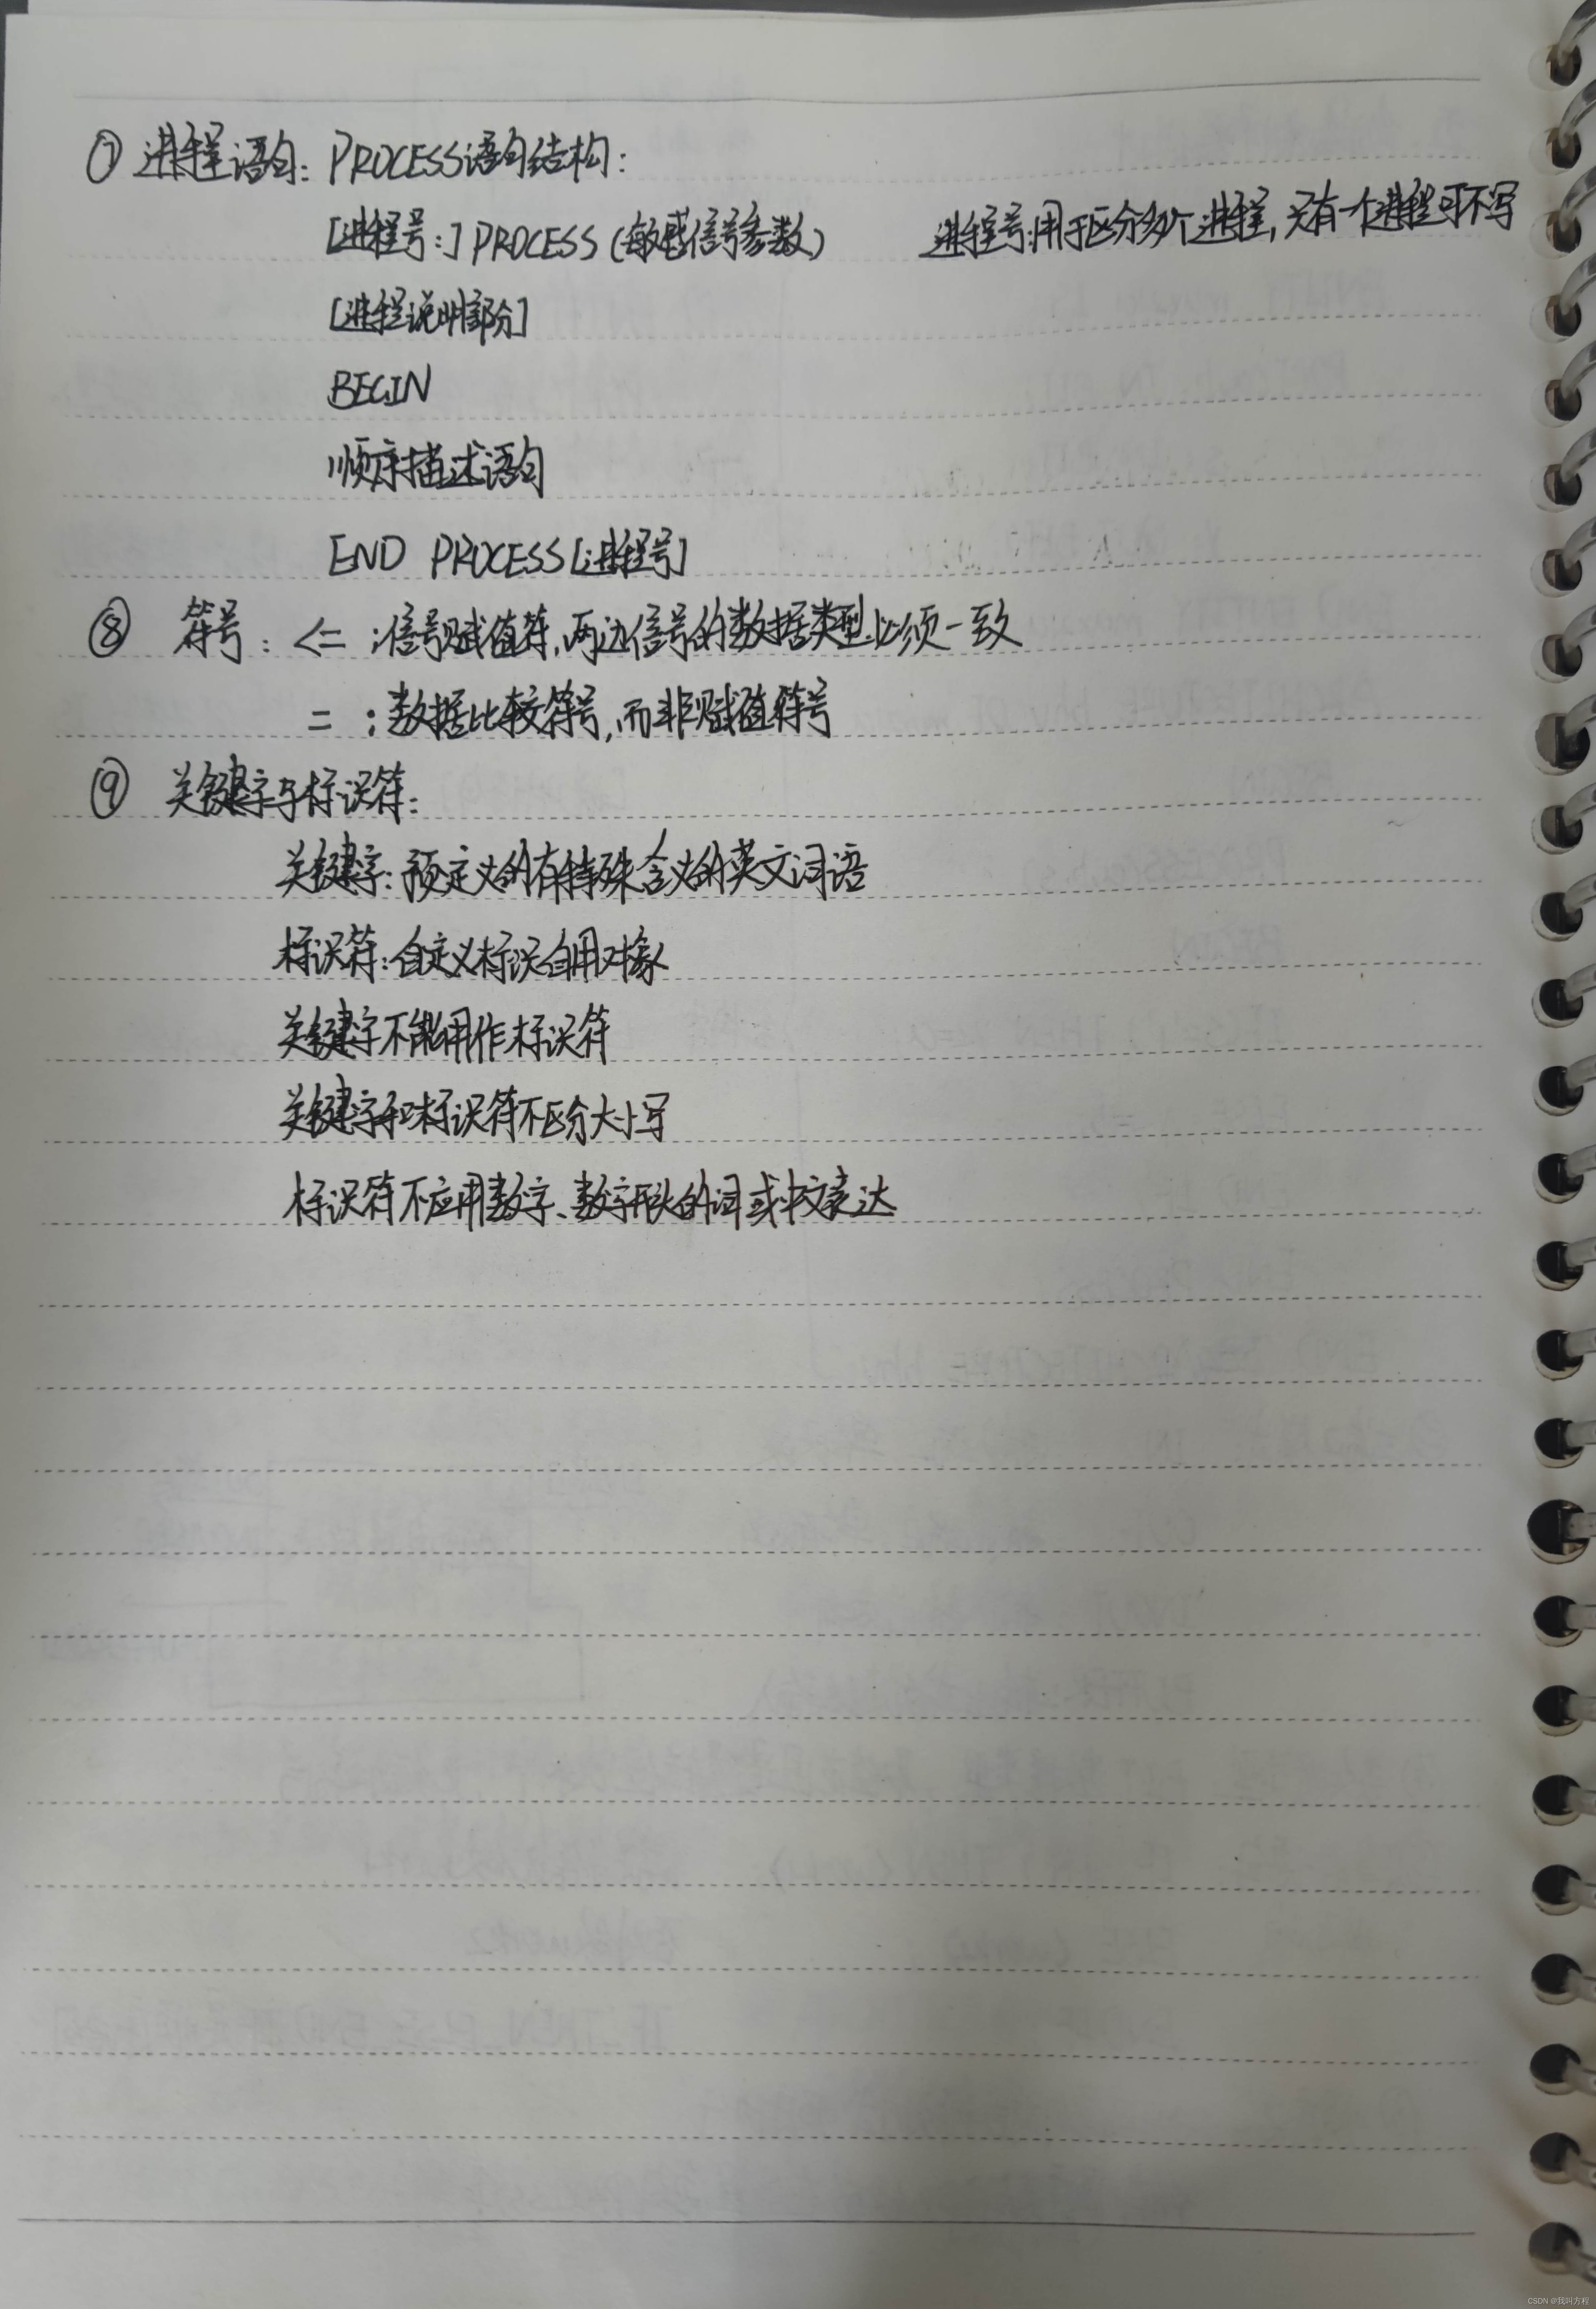 ⑦ 进程语句：PROCESS语句结构：
[进程号：] PROCESS (敏感信号参数) 进程号：用于区分多个进程，只有一个进程可不写
[进程说明部分]
BEGIN
顺序描述语句
END PROCESS [进程号]
⑧ 符号：<= ：信号赋值符，两边信号的数据类型必须一致
= ：数据比较符号，而非赋值符号
⑨ 关键字与标识符：
关键字：预定义的有特殊含义的英文词语
标识符：自定义标识自用对象
关键字不能用作标识符
关键字和标识符不区分大小写
标识符不应用数字、数字开头的词或中文表达
CSDN @我叫方程